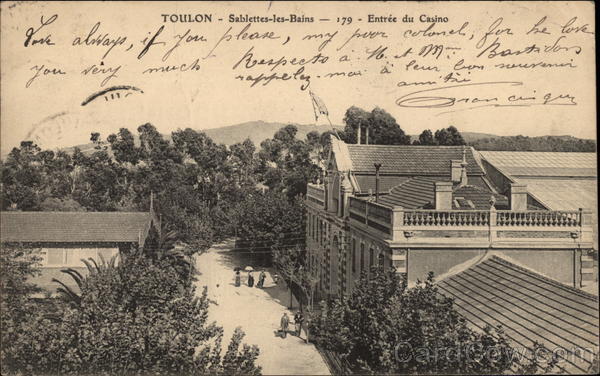 TOULON - Sablettes-les-Bains — 179 - Entrée du Casino
Love always, if you please, my poor colonel, for he love
you very much Respects à M et Mme Bastidon
rappelez moi à leur bon souvenir
amitié
CardCow.com